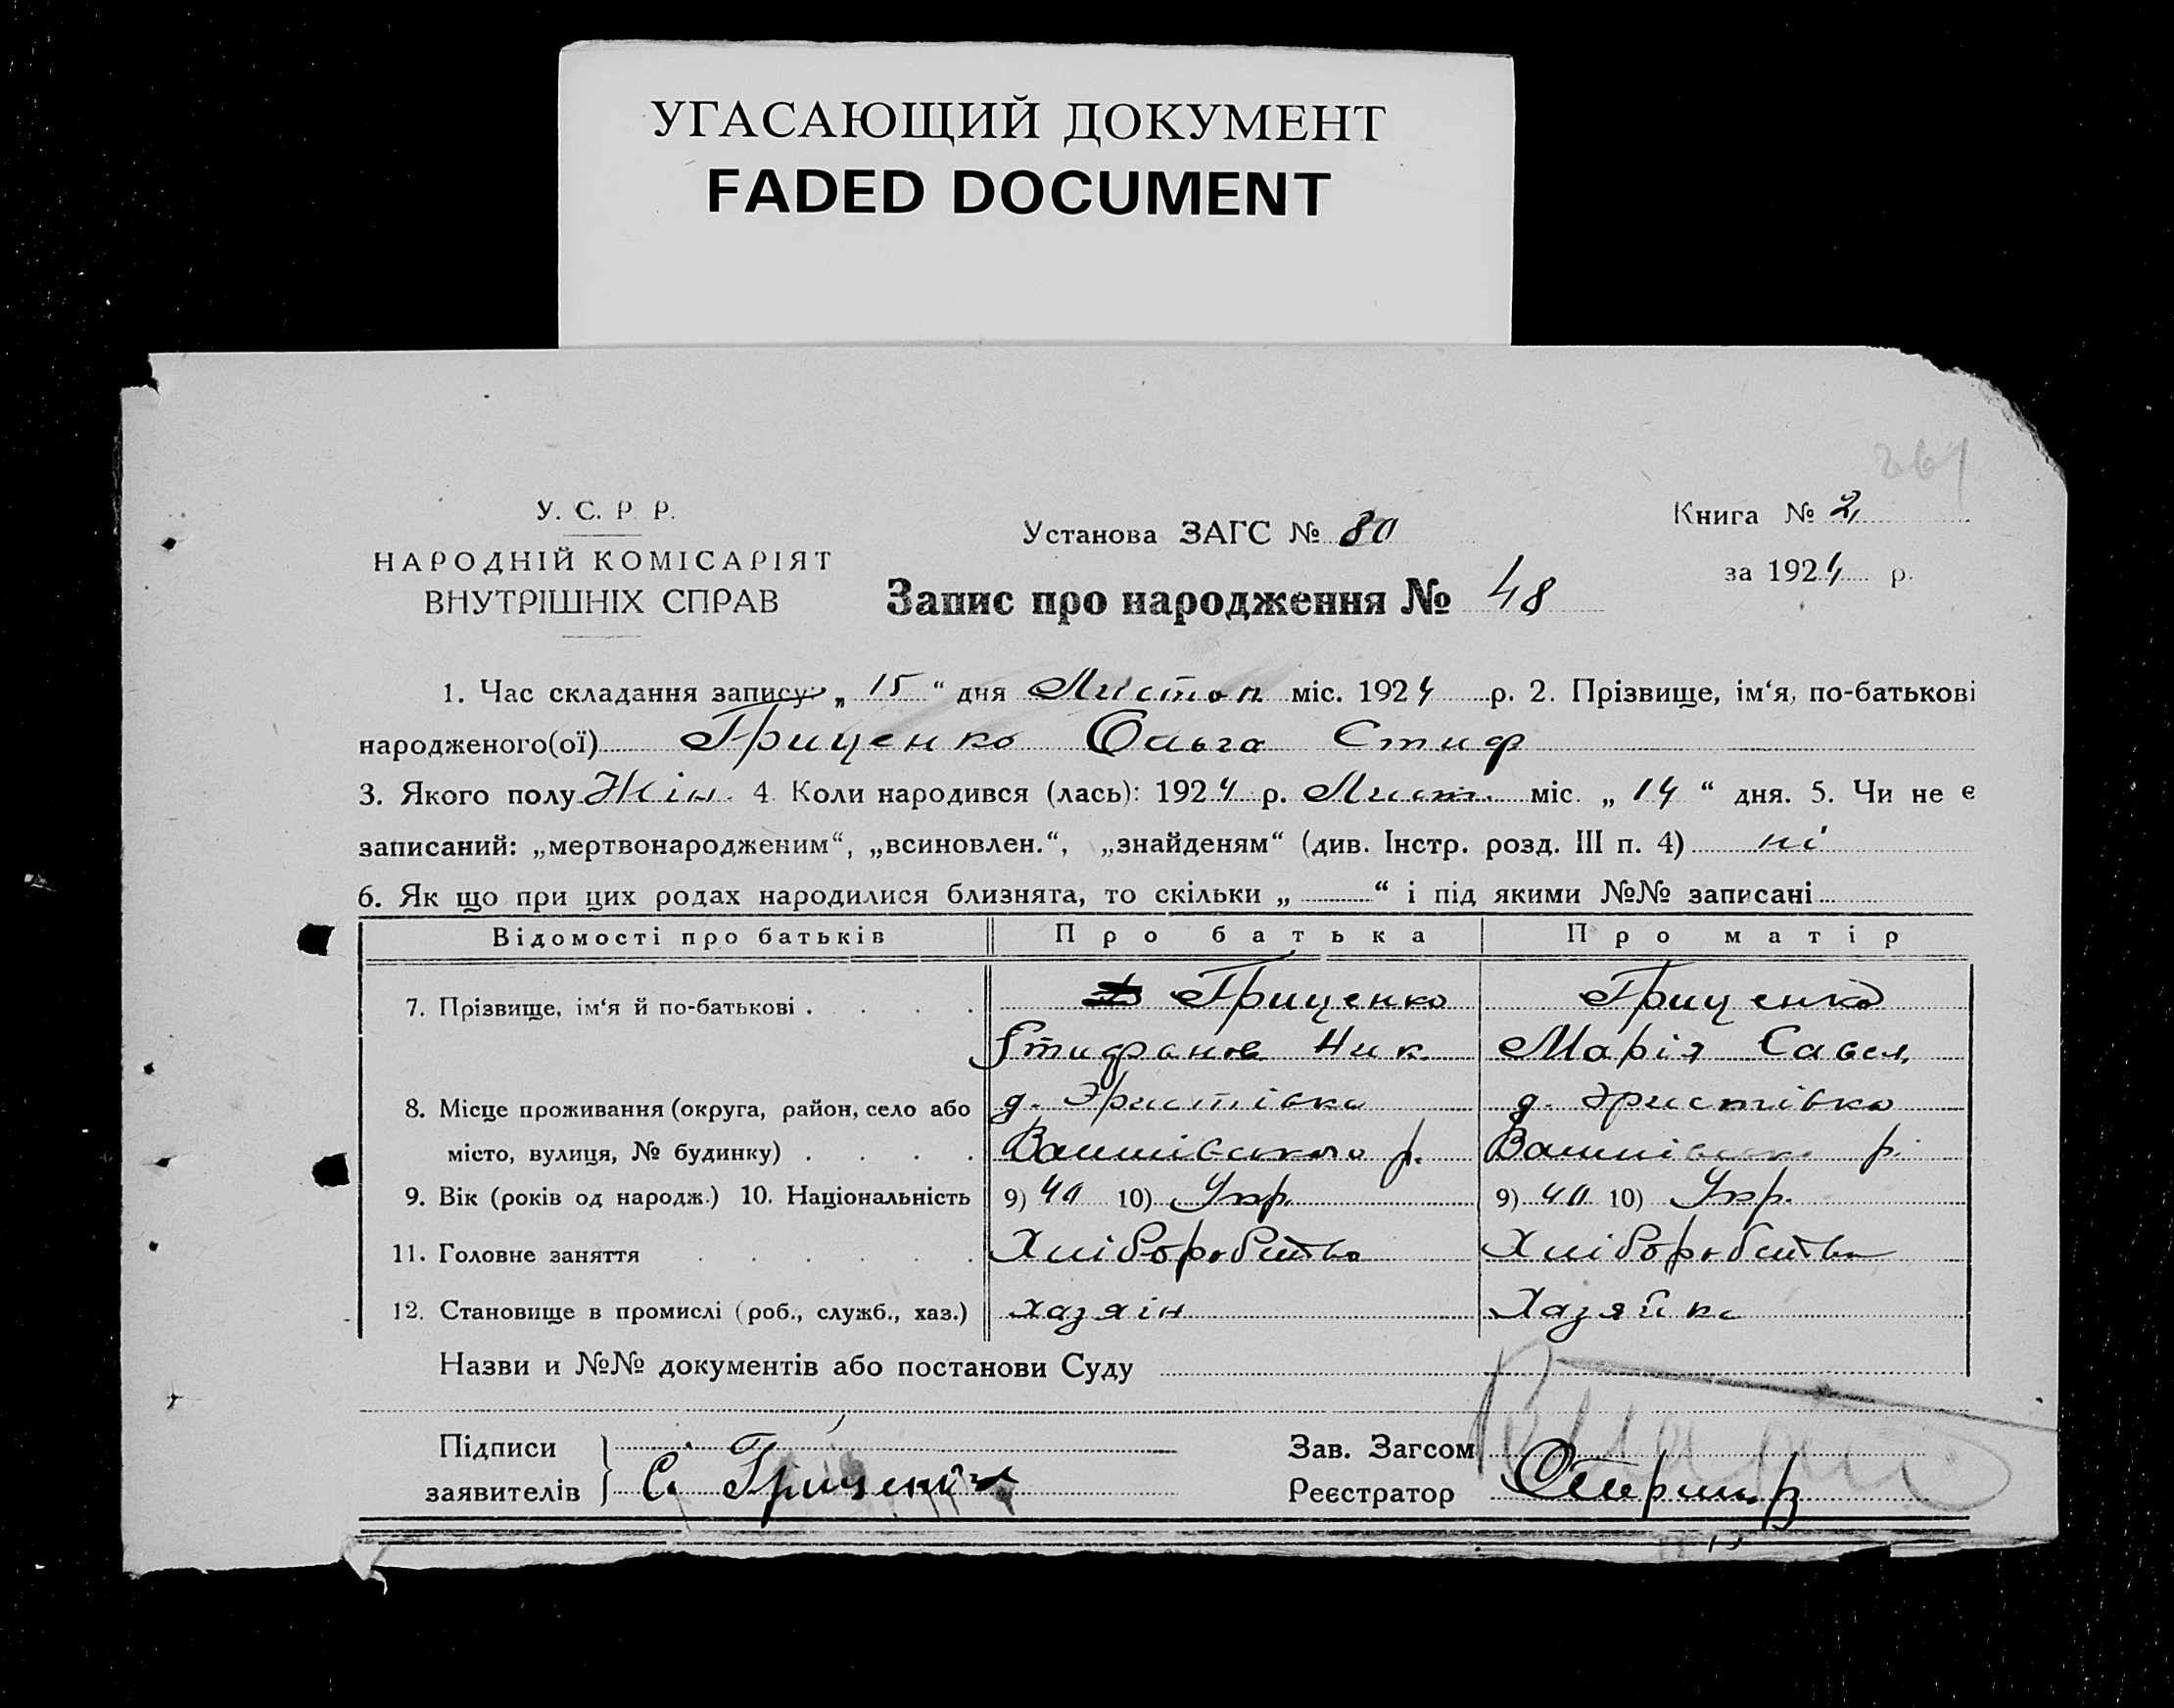 УГАСАЮЩИЙ ДОКУМЕНТ
FADED DOCUMENT
261
У. С. Р. Р.
НАРОДНІЙ КОМІСАРІЯТ
ВНУТРІШНІХ СПРАВ
Установа ЗАГС № 80
Запис про народження № 48
Книга № 2
за 1924 р.
1. Час складання запису: „ 15 “ дня Листоп міс. 1924 р. 2. Прізвище, ім‘я, по-батькові
народженого(ої) Гриценко Ольга Стиф
3. Якого полу Жін. 4. Коли народився (лась): 1924 р. Лист. міс. „ 14 “ дня. 5. Чи не є
записаний: „мертвонародженим“, „всиновлен.“, „знайденям“ (див. Інстр. розд. III п. 4) ні
6. Як що при цих родах народилися близнята, то скільки „ “ і під якими №№ записані
Відомості про батьків Про батька Про матір
7. Прізвище, ім‘я й по-батькові . . . . Гриценко Гриценко
Стифанов Ник. Марія Савел.
8. Місце проживання (округа, район, село або д. Эристівка д. Эристівка
місто, вулиця, № будинку) . . . . р. р.
9. Вік (років од народж.) 10. Національність 9) 40 10) Укр. 9) 40 10) Укр.
11. Головне заняття . . . . . . Хліборобство Хліборобство
12. Становище в промислі (роб., служб., хаз.) хазяін Хазяйка
Назви и №№ документів або постанови Суду
Підписи
заявителів } С. Гриценко
Зав. Загсом
Реєстратор